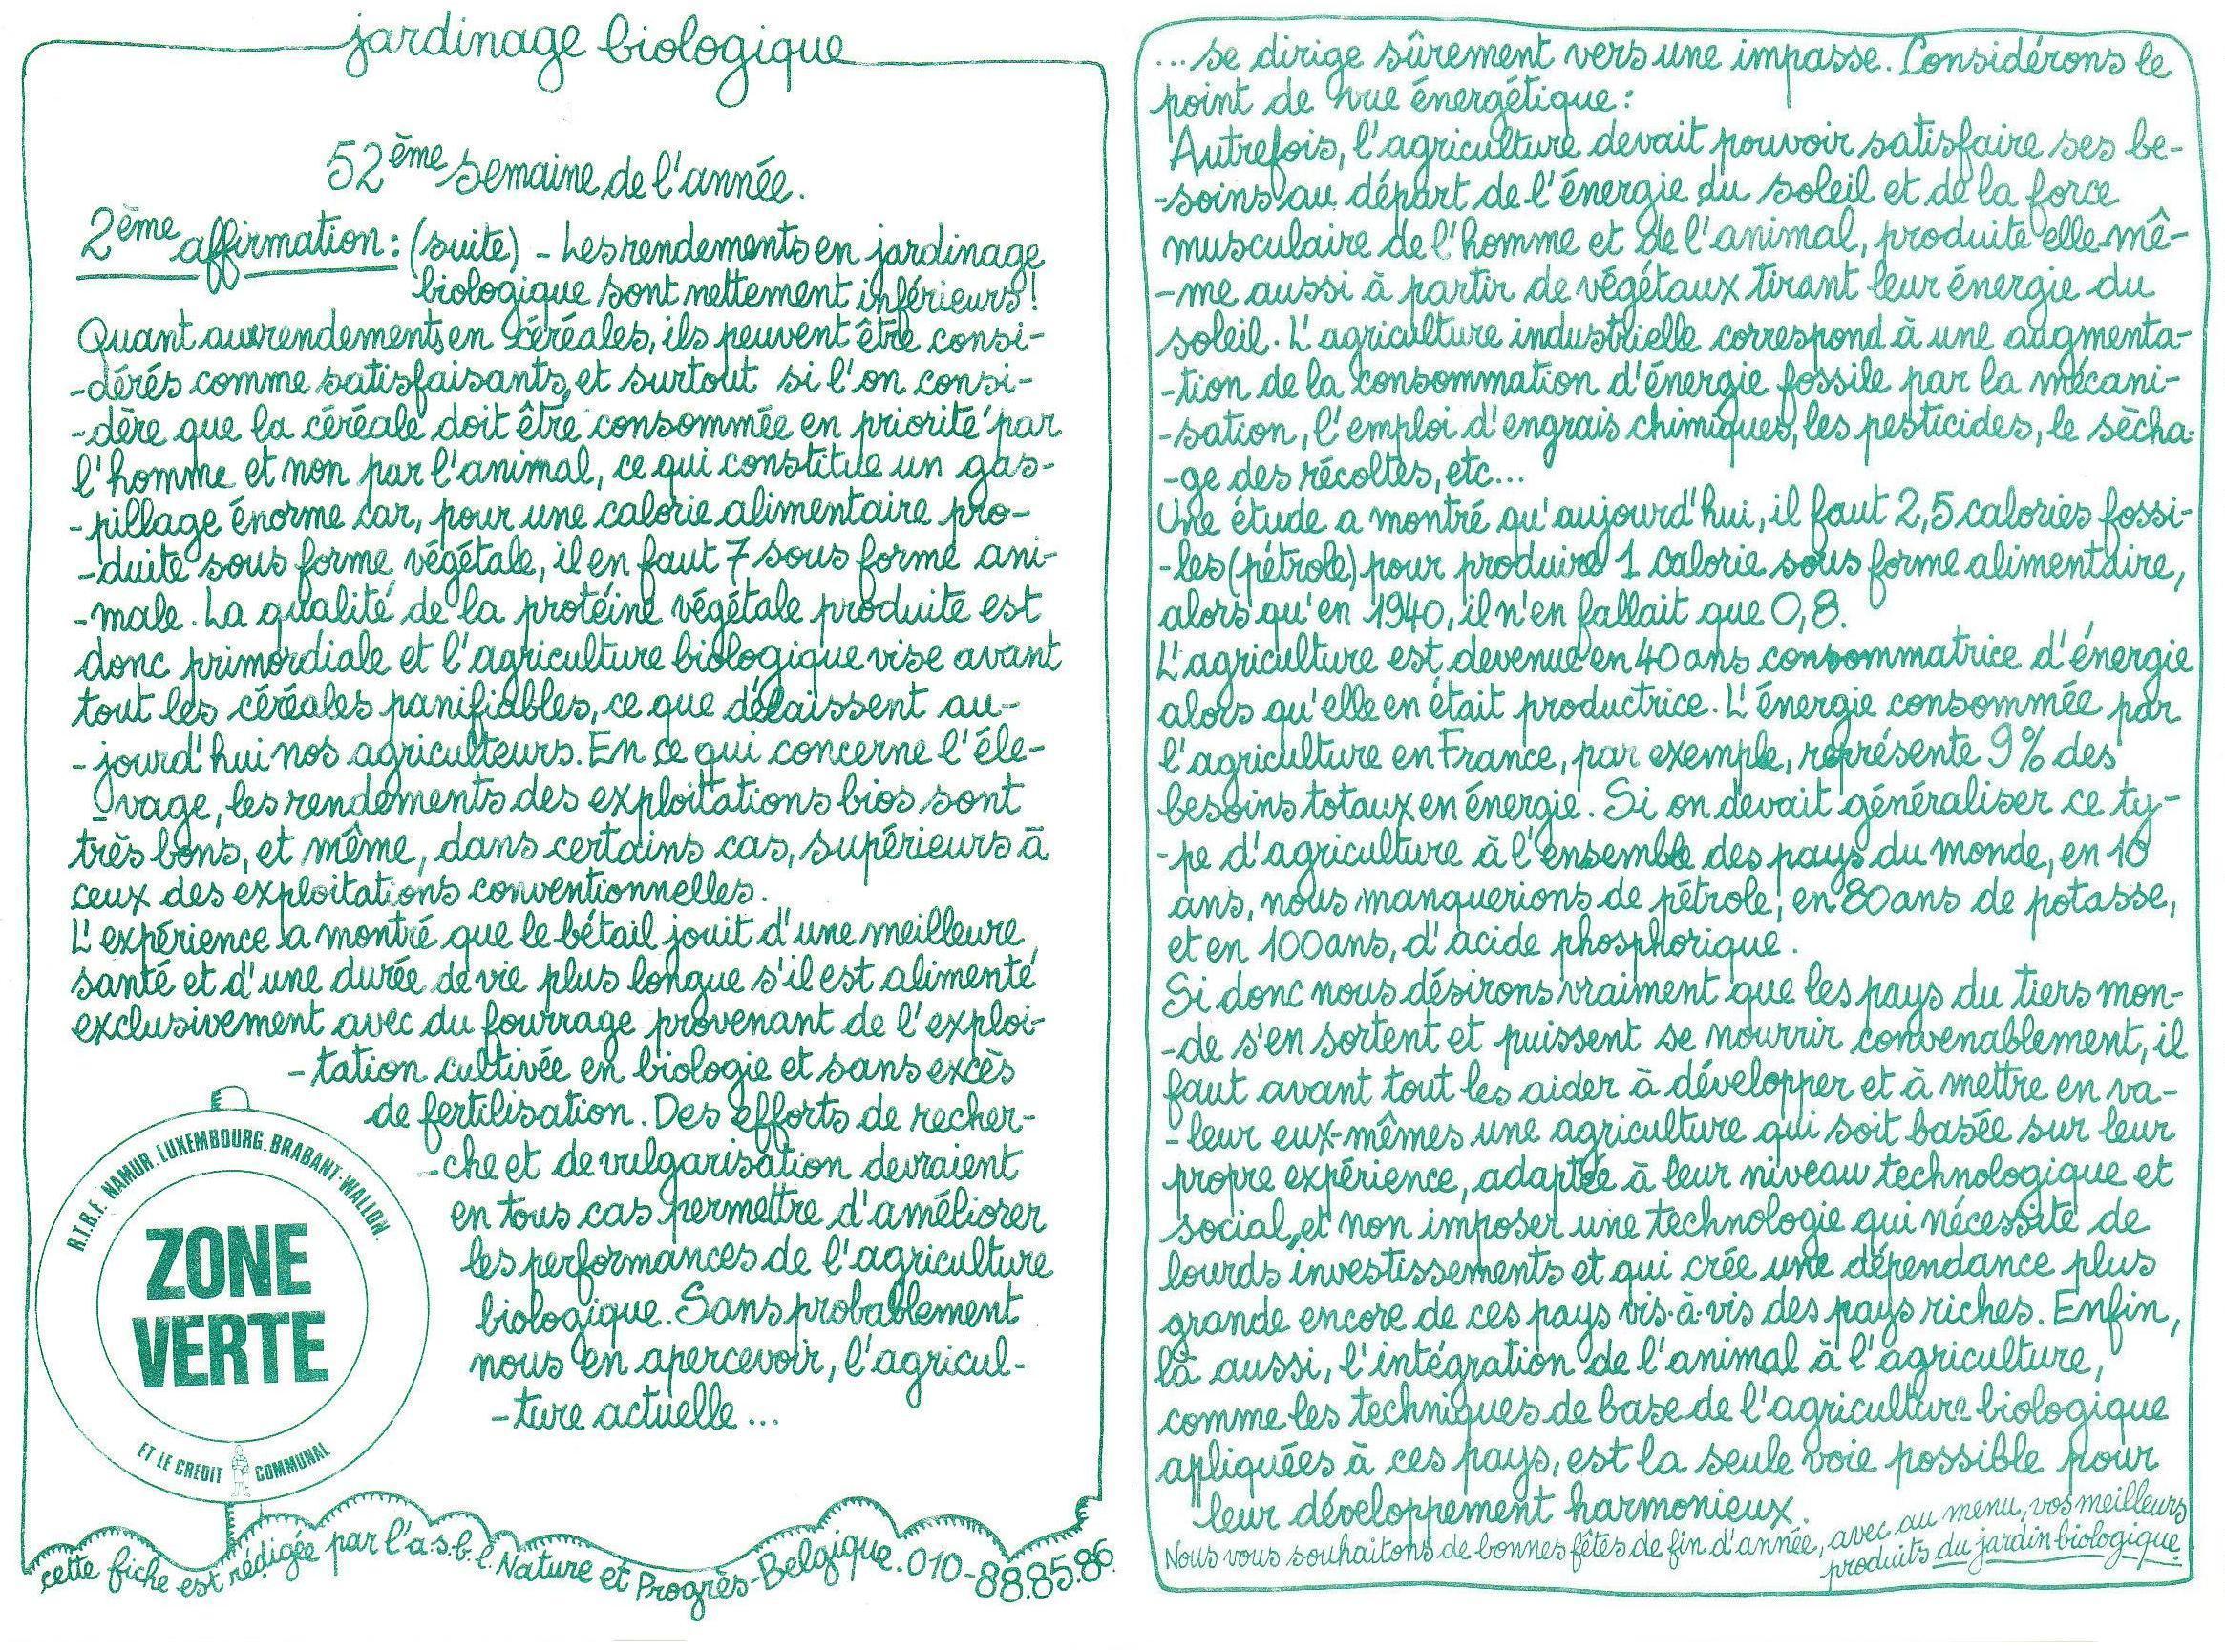 jardinage biologique
52ème semaine de l'année.
2ème affirmation : (suite) - Les rendements en jardinage
biologique sont nettement inférieurs !
Quant aux rendements en céréales, ils peuvent être consi-
-dérés comme satisfaisants, et surtout si l'on consi-
-dère que la céréale doit être consommée en priorité par
l'homme et non par l'animal, ce qui constitue un gas-
-pillage énorme car, pour une calorie alimentaire pro-
-duite sous forme végétale, il en faut 7 sous forme ani-
-male. La qualité de la protéine végétale produite est
donc primordiale et l'agriculture biologique vise avant
tout les céréales panifiables, ce que délaissent au-
-jourd'hui nos agriculteurs. En ce qui concerne l'éle-
-vage, les rendements des exploitations bios sont
très bons, et même, dans certains cas, supérieurs à
ceux des exploitations conventionnelles.
L'expérience a montré que le bétail jouit d'une meilleure
santé et d'une durée de vie plus longue s'il est alimenté
exclusivement avec du fourrage provenant de l'exploi-
-tation cultivée en biologie et sans excès
de fertilisation. Des efforts de recher-
-che et de vulgarisation devraient
en tous cas permettre d'améliorer
les performances de l'agriculture
biologique. Sans probablement
nous en apercevoir, l'agricul-
-ture actuelle ...
R.T.B.F. NAMUR. LUXEMBOURG. BRABANT-WALLON.
ZONE
VERTE
ET LE CREDIT COMMUNAL
cette fiche est rédigée par l'a.s.b.l. Nature et Progrès-Belgique. 010-88.85.86
... se dirige sûrement vers une impasse. Considérons le
point de vue énergétique :
Autrefois, l'agriculture devait pouvoir satisfaire ses be-
-soins au départ de l'énergie du soleil et de la force
musculaire de l'homme et de l'animal, produite elle-mê-
-me aussi à partir de végétaux tirant leur énergie du
soleil. L'agriculture industrielle correspond à une augmenta-
-tion de la consommation d'énergie fossile par la mécani-
-sation, l'emploi d'engrais chimiques, les pesticides, le sécha-
-ge des récoltes, etc...
Une étude a montré qu'aujourd'hui, il faut 2,5 calories fossi-
-les (pétrole) pour produire 1 calorie sous forme alimentaire,
alors qu'en 1940, il n'en fallait que 0,8.
L'agriculture est devenue en 40 ans consommatrice d'énergie
alors qu'elle en était productrice. L'énergie consommée par
l'agriculture en France, par exemple, représente 9 % des
besoins totaux en énergie. Si on devait généraliser ce ty-
-pe d'agriculture à l'ensemble des pays du monde, en 10
ans, nous manquerions de pétrole, en 80 ans de potasse,
et en 100 ans, d'acide phosphorique.
Si donc nous désirons vraiment que les pays du tiers mon-
-de s'en sortent et puissent se nourrir convenablement, il
faut avant tout les aider à développer et à mettre en va-
-leur eux-mêmes une agriculture qui soit basée sur leur
propre expérience, adaptée à leur niveau technologique et
social, et non imposer une technologie qui nécessite de
lourds investissements et qui crée une dépendance plus
grande encore de ces pays vis-à-vis des pays riches. Enfin,
là aussi, l'intégration de l'animal à l'agriculture,
comme les techniques de base de l'agriculture biologique
apliquées à ces pays, est la seule voie possible pour
leur développement harmonieux.
Nous vous souhaitons de bonnes fêtes de fin d'année, avec au menu, vos meilleurs
produits du jardin biologique